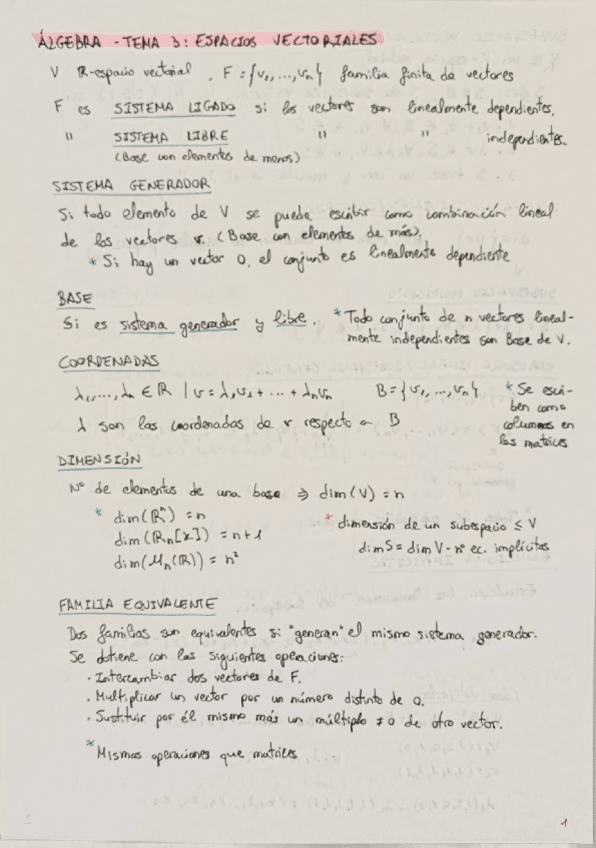 ÁLGEBRA - TEMA 3: ESPACIOS VECTORIALES
V R-espacio vectorial, F = {v₁, ..., vₙ} familia finita de vectores
F es SISTEMA LIGADO si los vectores son linealmente dependientes.
" SISTEMA LIBRE " " independientes.
(Base con elementos de menos)
SISTEMA GENERADOR
Si todo elemento de V se puede escribir como combinación lineal
de los vectores v. (Base con elementos de más).
* Si hay un vector 0, el conjunto es linealmente dependiente
BASE
Si es sistema generador y libre. * Todo conjunto de n vectores lineal-
mente independientes son Base de V.
COORDENADAS
λ₁, ..., λₙ ∈ R / v = λ₁v₁ + ... + λₙvₙ B = {v₁, ..., vₙ} * Se escri-
ben como
columnas en
las matrices
λ son las coordenadas de v respecto a B
DIMENSIÓN
Nº de elementos de una base ⇒ dim(V) = n
* dim(Rⁿ) = n
dim(Rₙ[x]) = n+1
dim(Mₙ(R)) = n²
* dimensión de un subespacio ≤ V
dim S = dim V - nº ec. implícitas
FAMILIA EQUIVALENTE
Dos familias son equivalentes si "generan" el mismo sistema generador.
Se obtiene con las siguientes operaciones:
· Intercambiar dos vectores de F.
· Multiplicar un vector por un número distinto de 0.
· Sustituir por él mismo más un múltiplo ≠ 0 de otro vector.
* Mismas operaciones que matrices
1